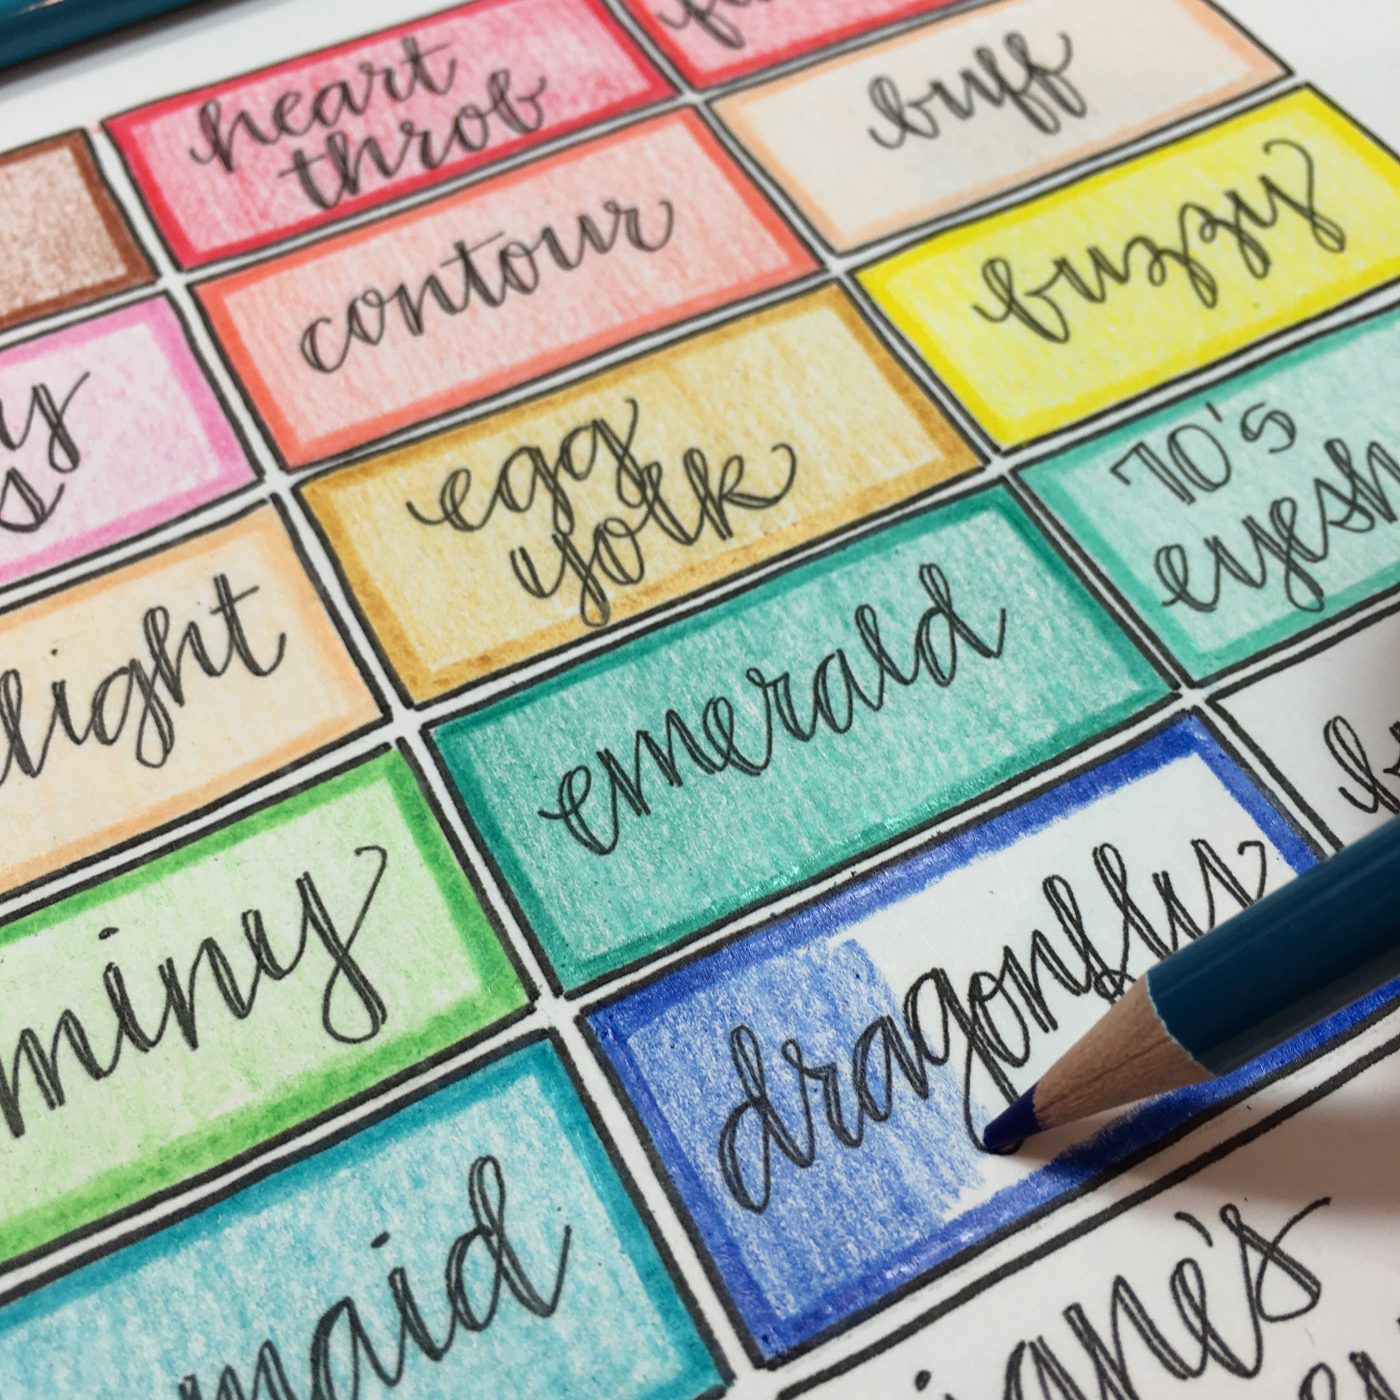 heart
throb
buff
contour
buzzy
egg
yolk
70's
light
emerald
miny
dragonfly
maid